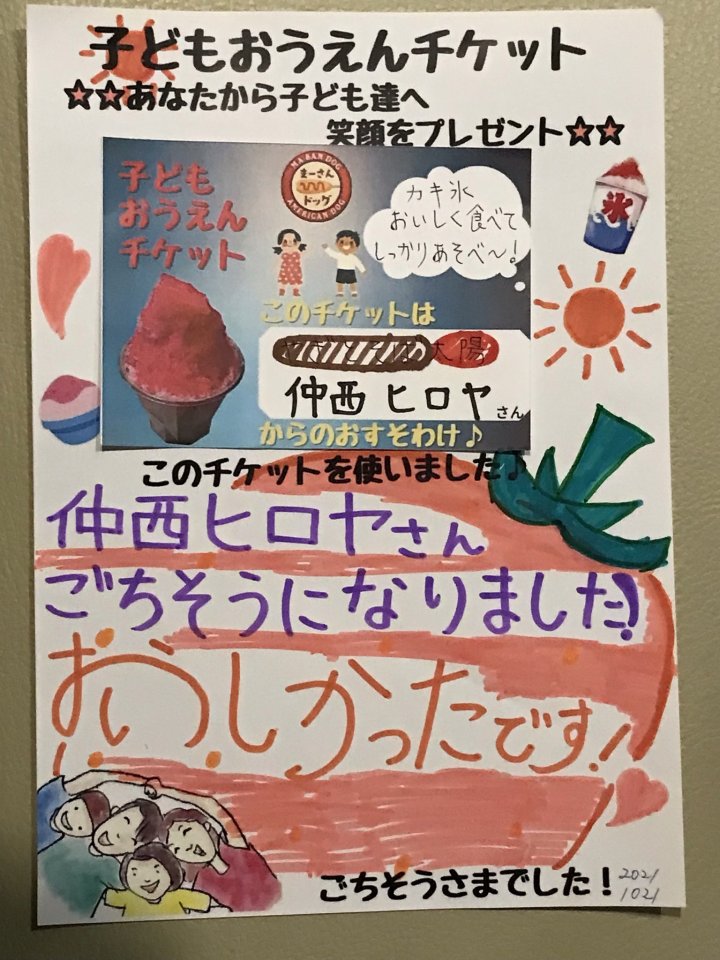 子どもおうえんチケット
☆☆あなたから子ども達へ
笑顔をプレゼント☆☆
子ども
おうえん
チケット
MA-SAN DOG
まーさん
ドッグ
AMERICAN DOG
カキ氷
おいしく食べて
しっかりあそべ〜!
氷
このチケットは
太陽
仲西 ヒロヤさん
からのおすそわけ♪
このチケットを使いました♪
仲西ヒロヤさん
ごちそうになりました!
おいしかったです!
ごちそうさまでした!
2021
1021